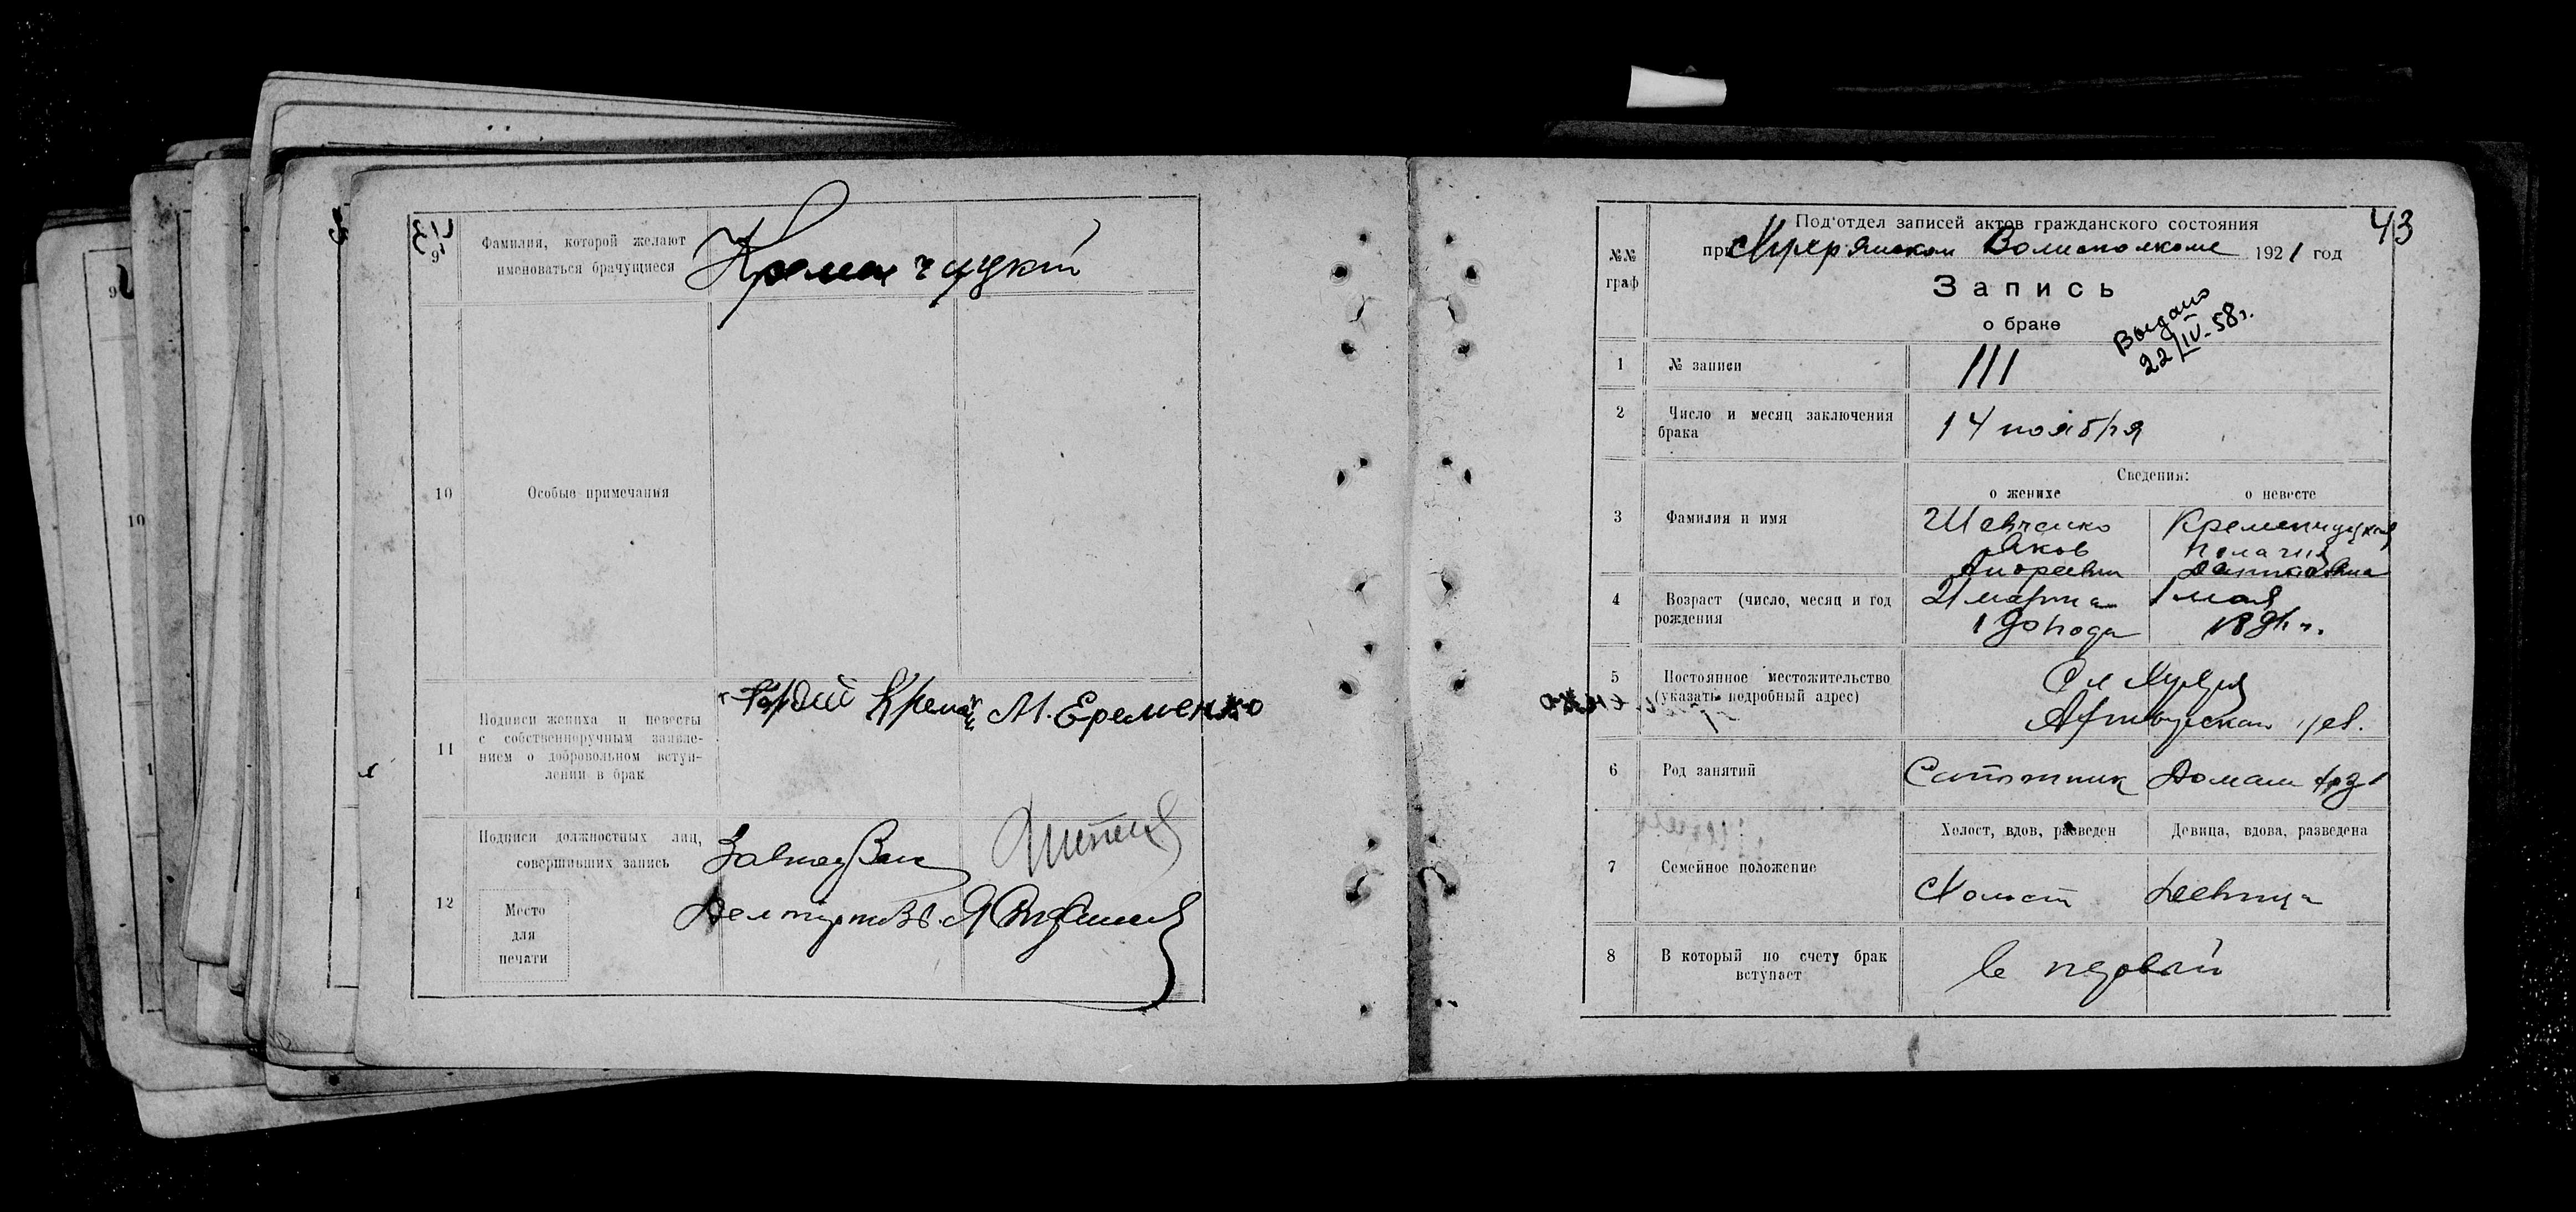 9
Фамилия, которой желают
именоваться брачущиеся
Кременчуцкій
10
Особые примечания
11
Подписи жениха и невесты
с собственноручным заявле-
нием о добровольном вступ-
лении в брак
Кремен М. Еременко
12
Подписи должностных лиц,
совершивших запись
Место
для
печати
43
Под'отдел записей актов гражданского состояния
при Волисполкоме 1921 год
№№
граф
Запись
о браке
Выдано
22/IV-58г.
1
№ записи
111
2
Число и месяц заключения
брака
14 ноября
Сведения:
о женихе
о невесте
3
Фамилия и имя
Шевченко
Яков
Андреевич
Кременчуцкая
Пелагия
4
Возраст (число, месяц и год
рождения
21 марта
190 года
1 мая
5
Постоянное местожительство
(указать подробный адрес)
Сл
6
Род занятий
Домаш
7
Семейное положение
Холост, вдов, разведен
Девица, вдова, разведена
Холост
Девица
8
В который по счету брак
вступает
в первый